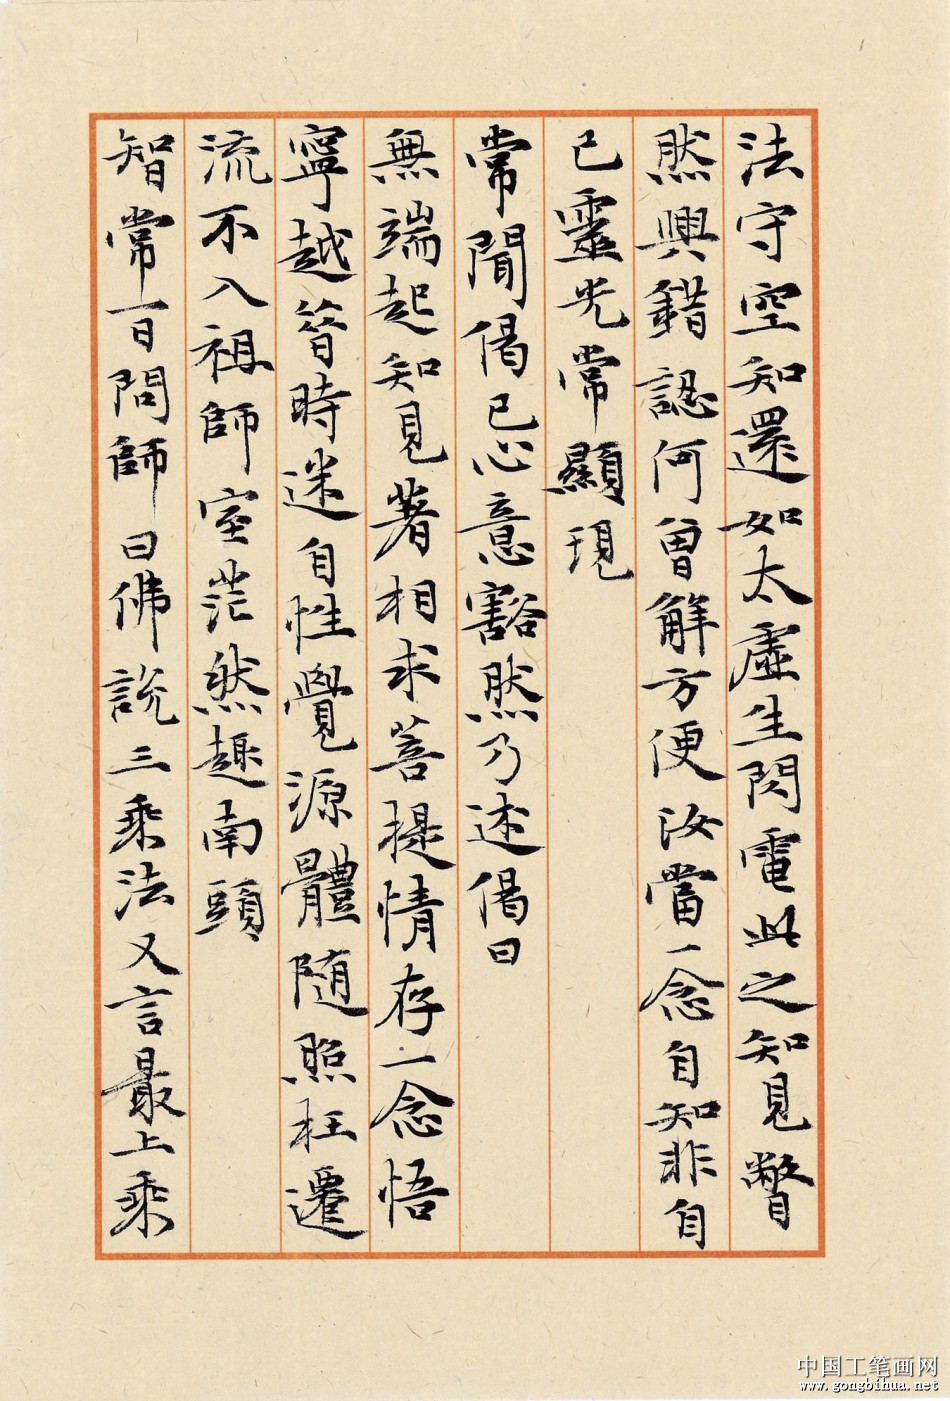 法守空知還如太虛生閃電此之知見瞥
然興錯認何曾解方便汝當一念自知非自
已靈光常顯現
常聞偈已心意豁然乃述偈曰
無端起知見著相求菩提情存一念悟
寧越昔時迷自性覺源體隨照枉遷
流不入祖師室茫然趣南頭
智常一日問師曰佛說三乘法又言最上乘
中国工笔画网
www.gongbihua.net